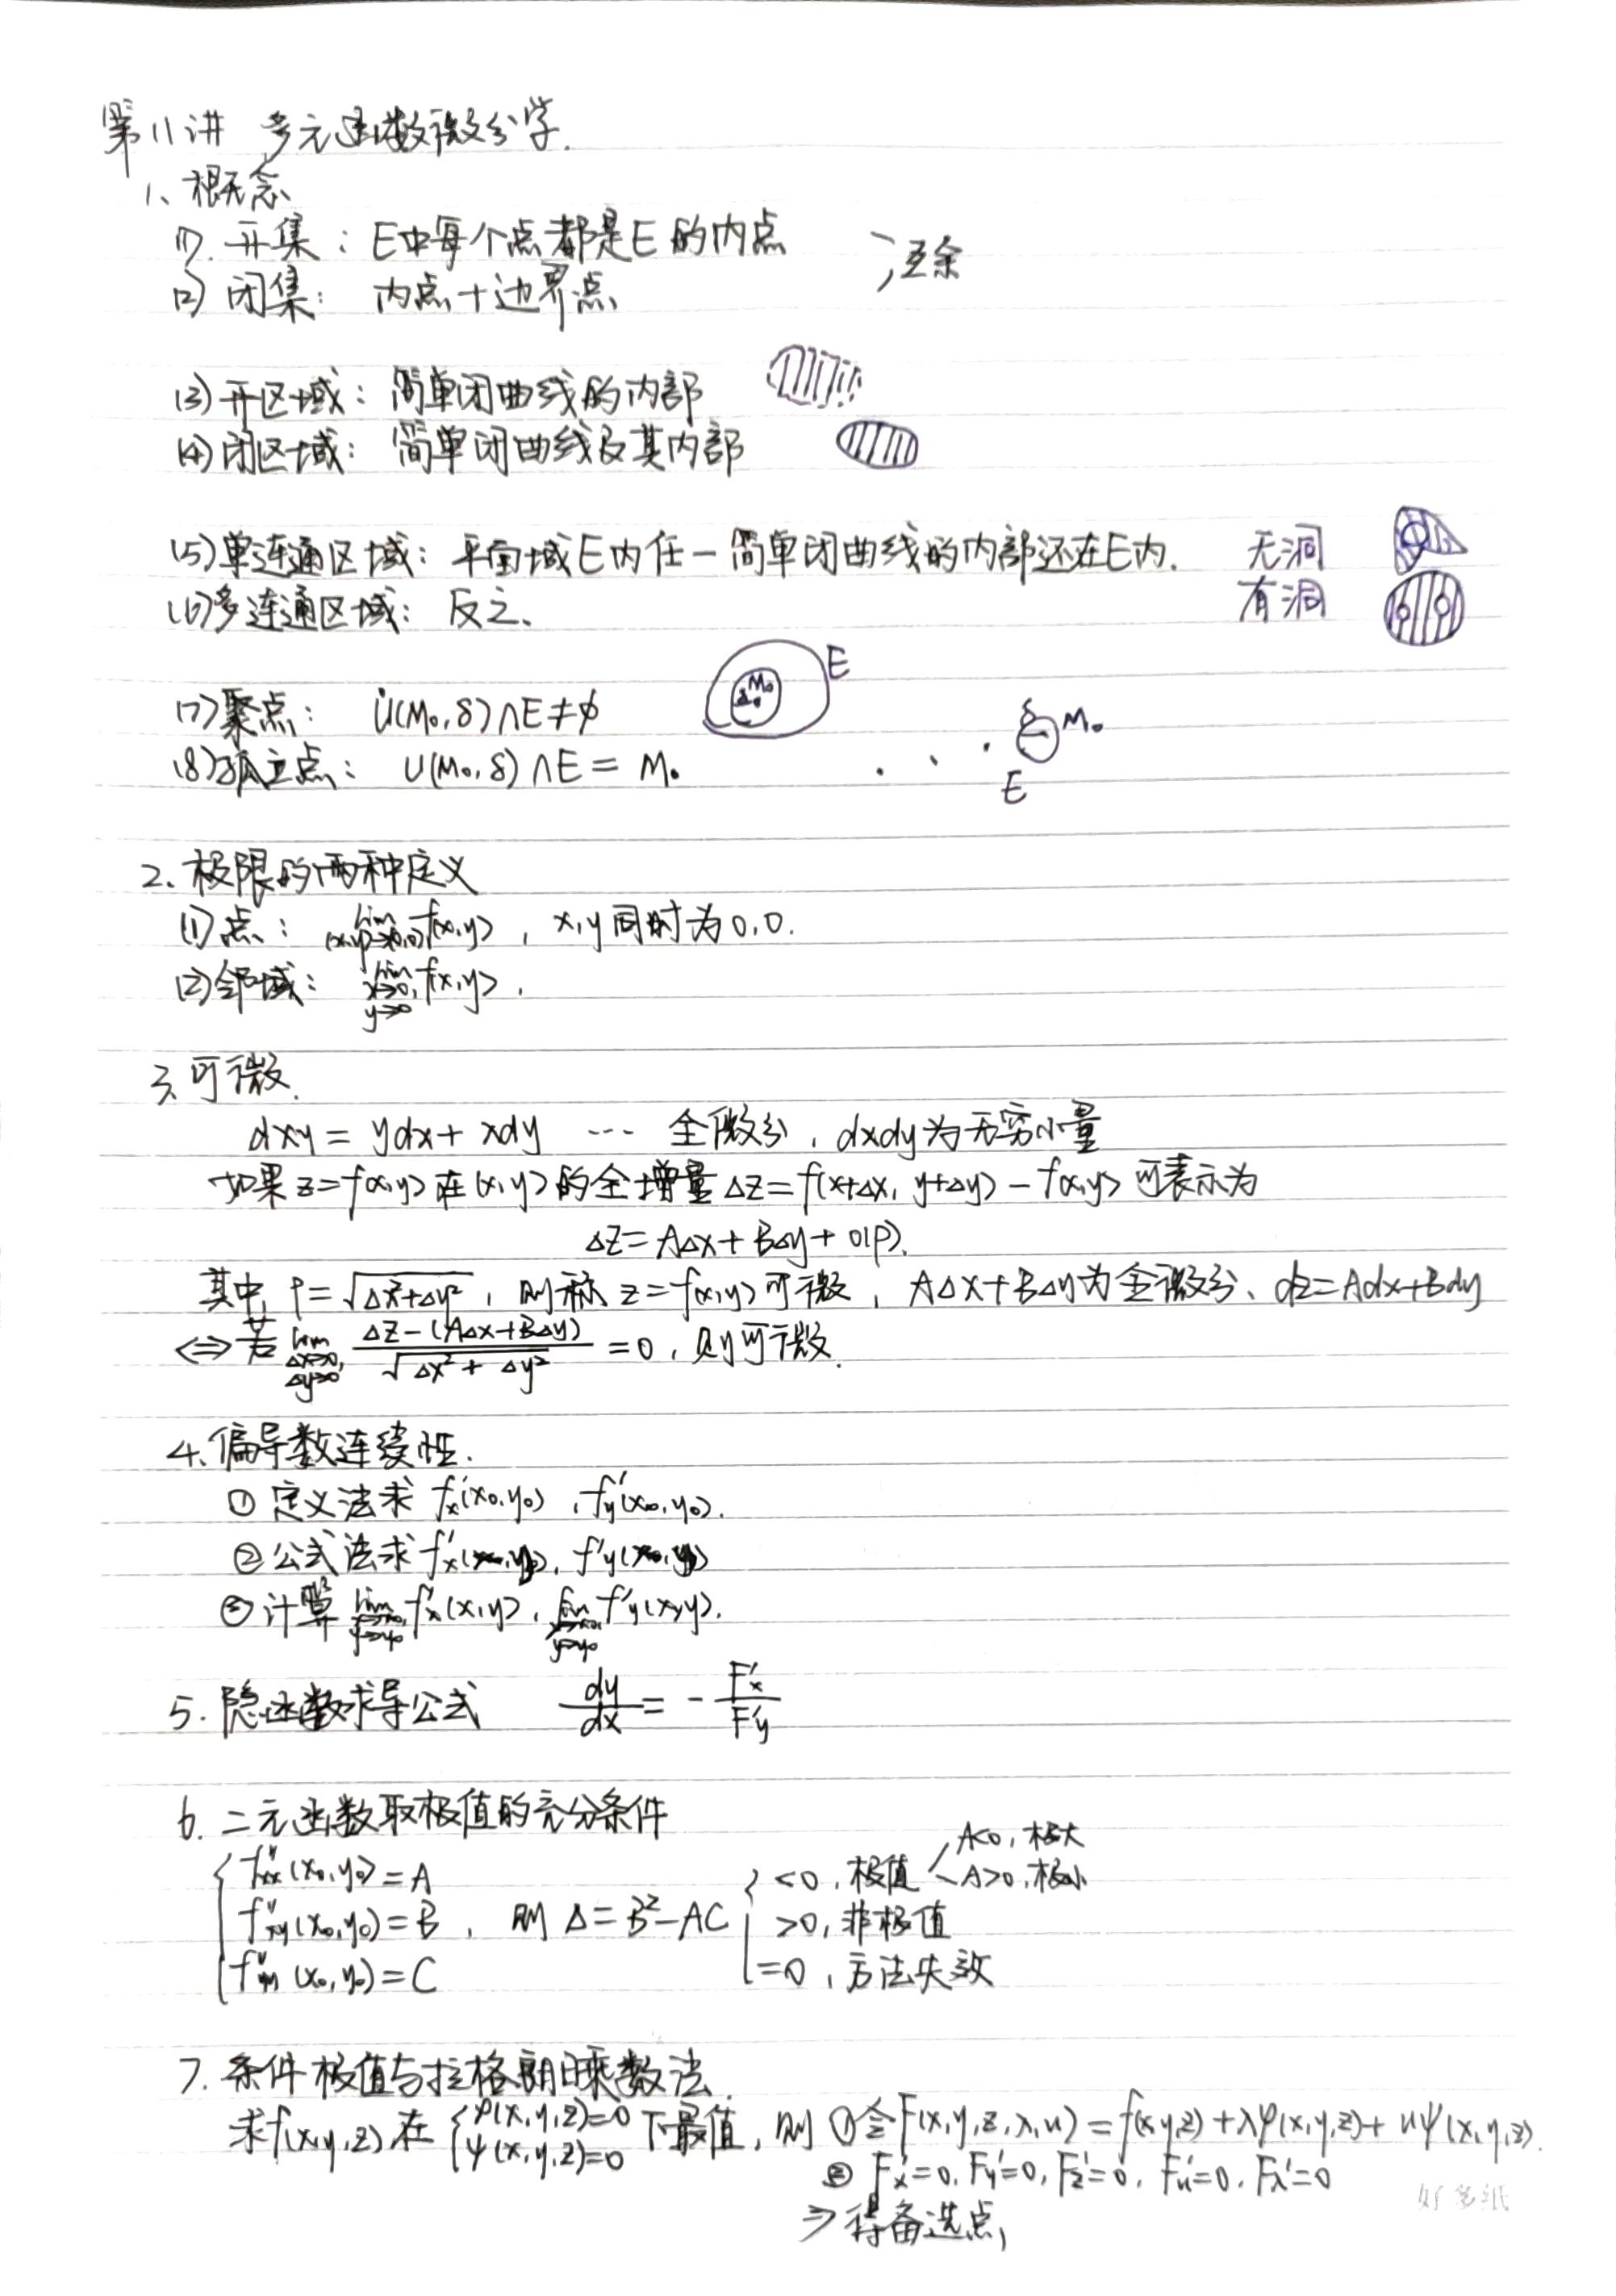 第11讲 多元函数微分学.
1、概念
(1). 开集：E中每个点都是E的内点
(2) 闭集：内点+边界点
}互余
(3) 开区域：简单闭曲线的内部
(4) 闭区域：简单闭曲线及其内部
(5) 单连通区域：平面域E内任一简单闭曲线的内部还在E内. 无洞
(6) 多连通区域：反之、 有洞
(7) 聚点：Ů(M₀,δ)∩E≠∅ M₀ E
(8) 孤立点：U(M₀,δ)∩E = M₀ δ M₀ E
2、极限的两种定义
(1) 点：lim(x,y)→(0,0) f(x,y)，x,y同时为0,0.
(2) 邻域：lim x→0, y→0 f(x,y).
3、可微.
dxy = ydx + xdy … 全微分，dxdy为无穷小量
如果z=f(x,y)在(x,y)的全增量Δz=f(x+Δx, y+Δy)-f(x,y)可表示为
Δz=AΔx+BΔy+o(ρ).
其中，ρ=√(Δx²+Δy²)，则称z=f(x,y)可微，AΔx+BΔy为全微分、dz=Adx+Bdy
⇔ 若 lim Δx→0, Δy→0 [Δz-(AΔx+BΔy)]/√(Δx²+Δy²) =0，则可微.
4、偏导数连续性.
① 定义法求 f'x(x₀,y₀)，f'y(x₀,y₀).
② 公式法求 f'x(x,y)，f'y(x,y)
③ 计算 lim x→x₀, y→y₀ f'x(x,y)，lim x→x₀, y→y₀ f'y(x,y).
5. 隐函数求导公式 dy/dx = - F'x/F'y
6. 二元函数取极值的充分条件
{ f''xx(x₀,y₀)=A <0，极值 < A<0，极大 A>0，极小
f''xy(x₀,y₀)=B，则 Δ=B²-AC { >0，非极值
f''yy(x₀,y₀)=C =0，方法失效
7. 条件极值与拉格朗日乘数法.
求f(x,y,z)在{φ(x,y,z)=0 ψ(x,y,z)=0 下最值，则 ①令F(x,y,z,λ,u)=f(x,y,z)+λφ(x,y,z)+uψ(x,y,z).
② F'x=0, F'y=0, F'z=0, F'u=0, F'λ=0
⇒得备选点，
好多纸